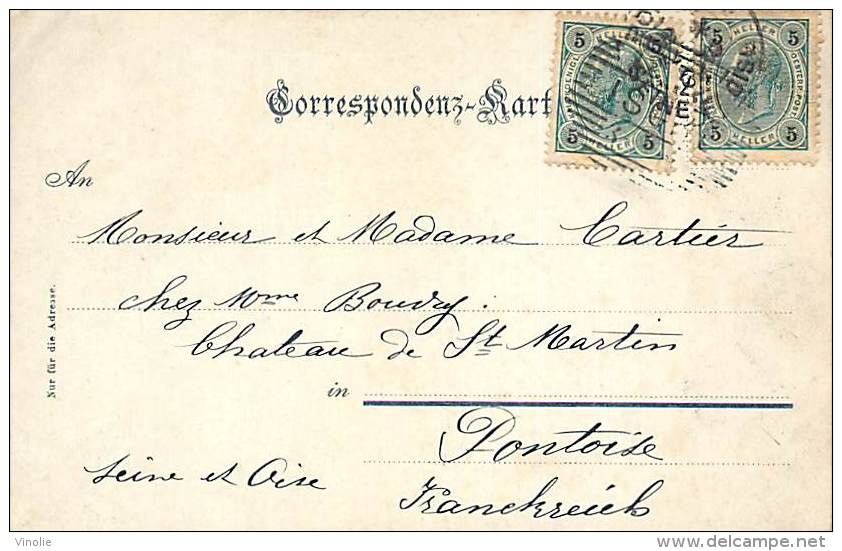 Correspondenz-Kart
5 HELLER 5
5 HELLER 5
5 HELLER 5
OESTERR. POST
5 HELLER 5
An
Monsieur et Madame Cartier
chez Mme Boudry.
Chateau de St Martin
in
Pontoise
Seine et Oise
Franckreich
Nur für die Adresse.
Vinolie
delcampe.net